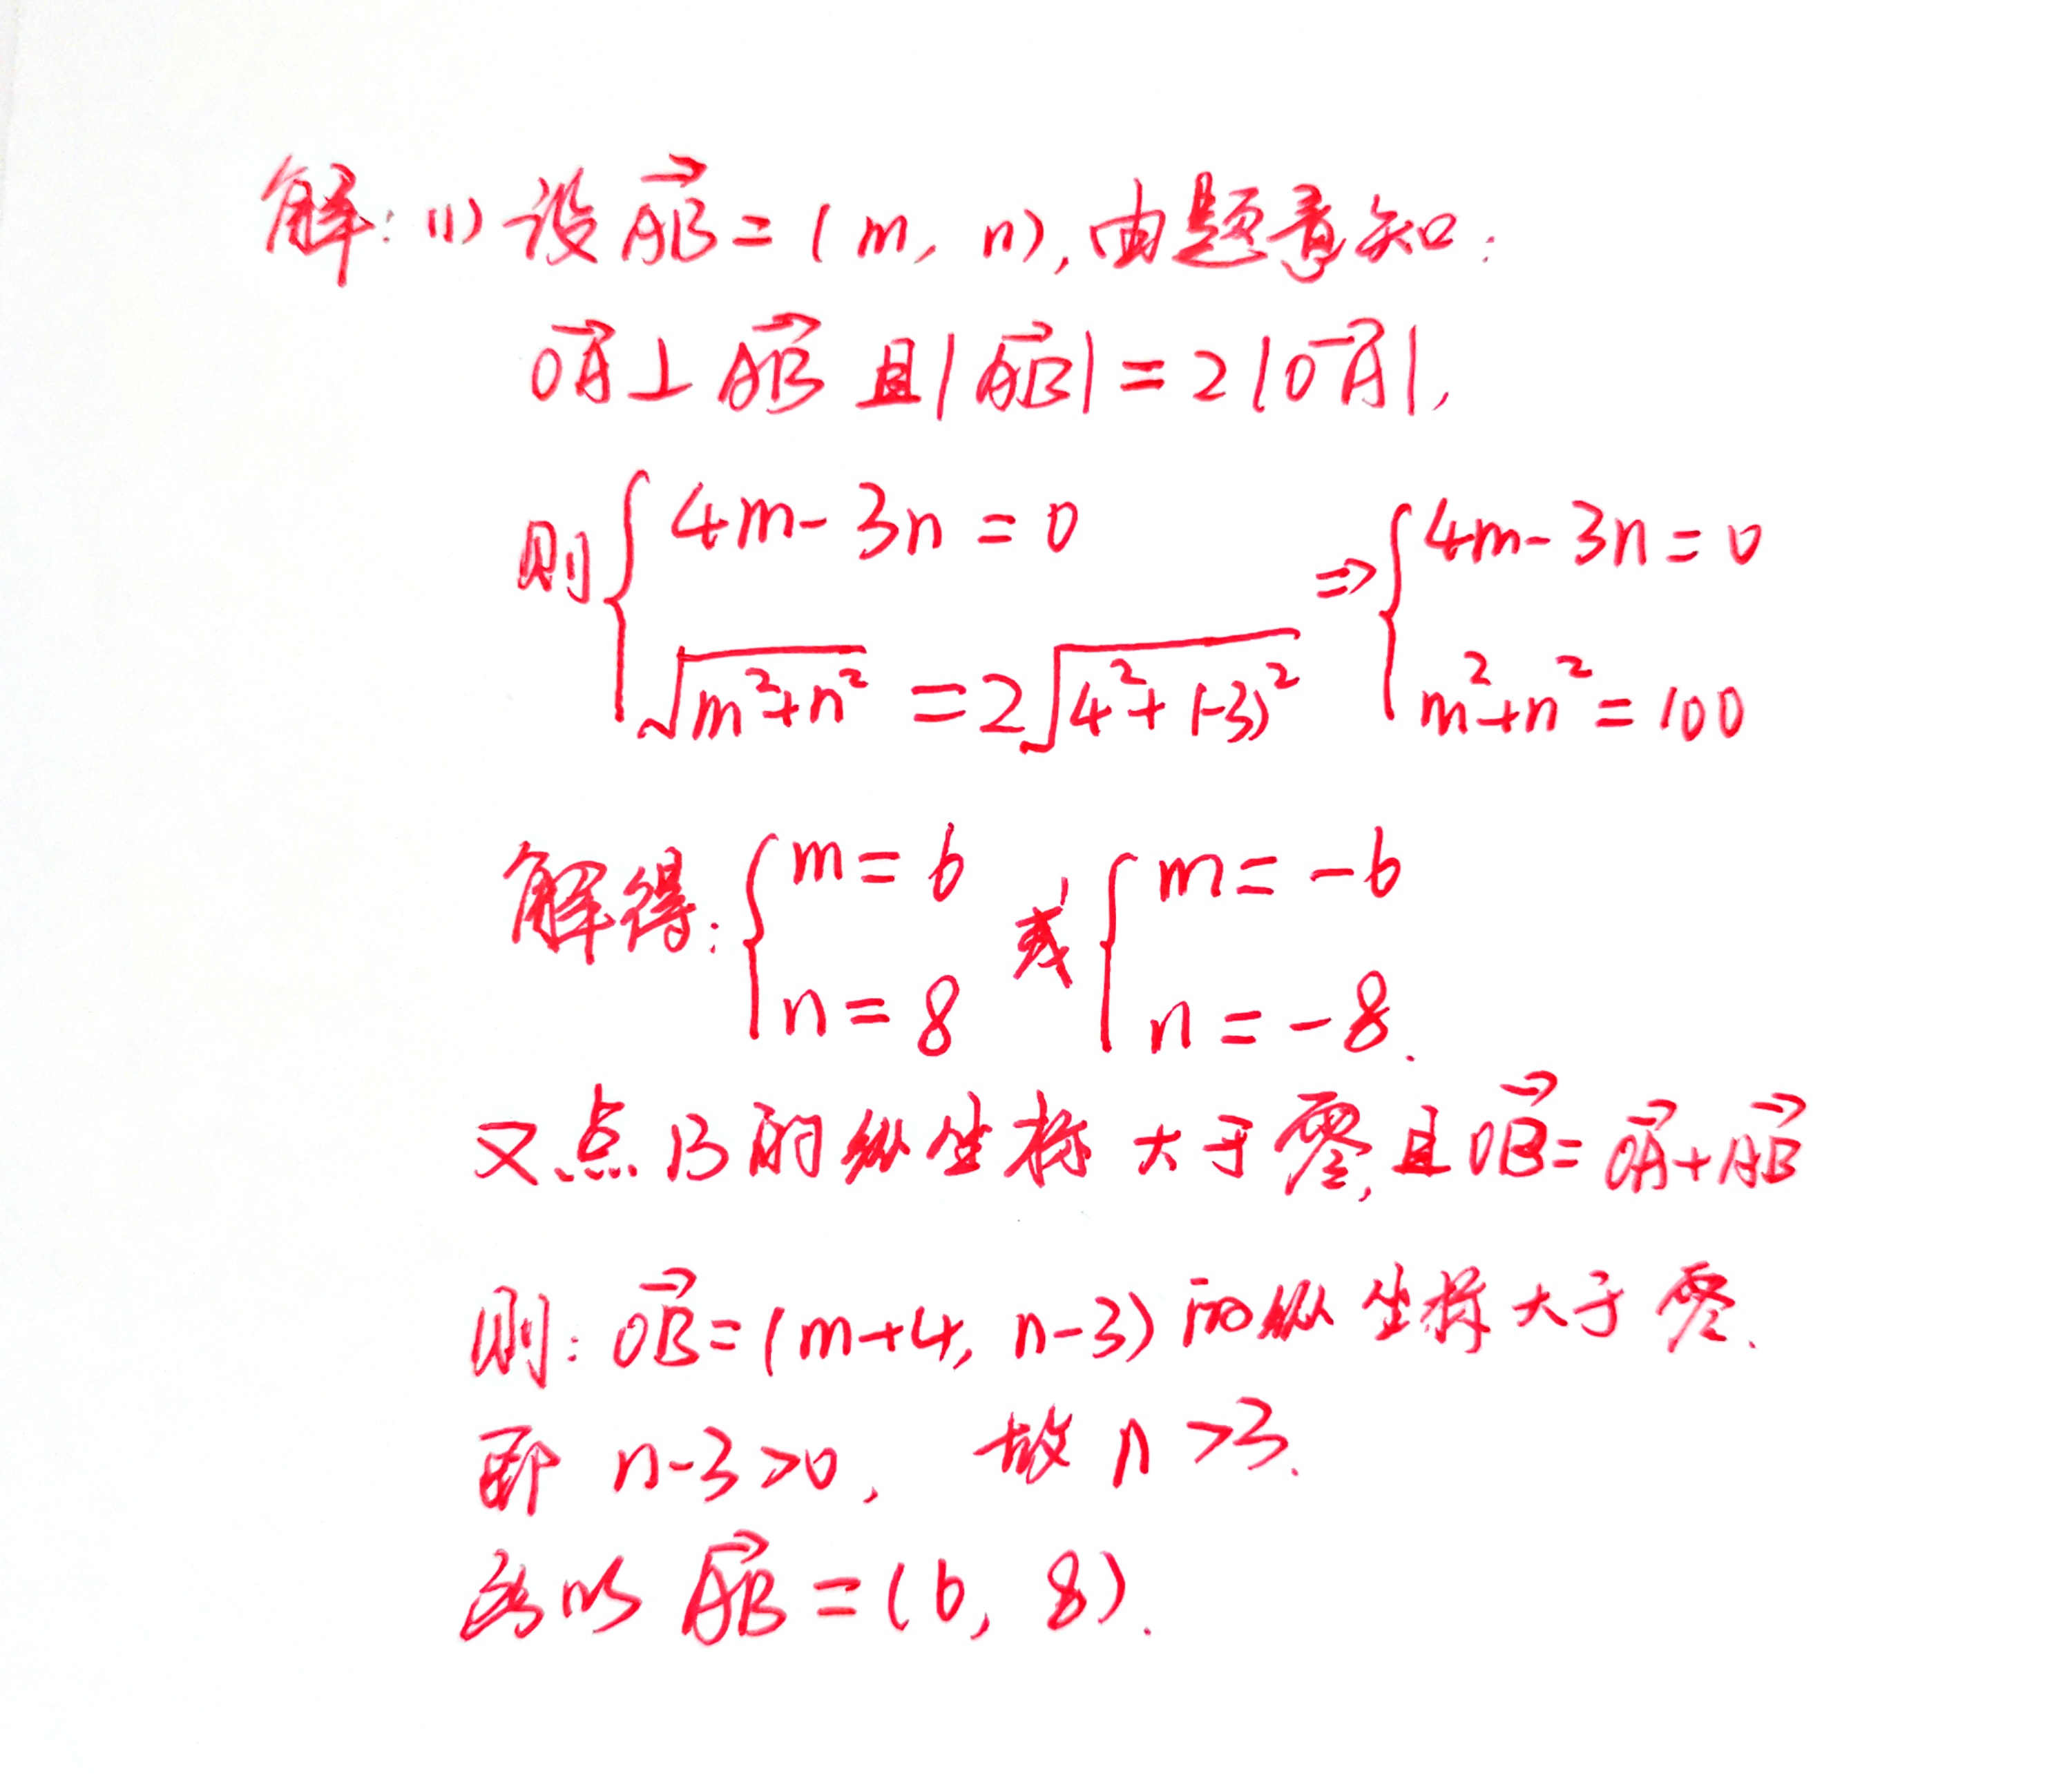 解:(1)设$\overrightarrow{AB}=(m, n)$,由题意知:
$\overrightarrow{OA}\perp\overrightarrow{AB}$ 且$|\overrightarrow{AB}|=2|\overrightarrow{OA}|$,
则$\begin{cases}4m-3n=0\\\sqrt{m^2+n^2}=2\sqrt{4^2+(-3)^2}\end{cases}\Rightarrow\begin{cases}4m-3n=0\\m^2+n^2=100\end{cases}$
解得:$\begin{cases}m=6\\n=8\end{cases}$ 或$\begin{cases}m=-6\\n=-8\end{cases}$.
又点B的纵坐标大于零,且$\overrightarrow{OB}=\overrightarrow{OA}+\overrightarrow{AB}$
则:$\overrightarrow{OB}=(m+4, n-3)$的纵坐标大于零.
即 $n-3>0$, 故 $n>3$.
所以 $\overrightarrow{AB}=(6, 8)$.